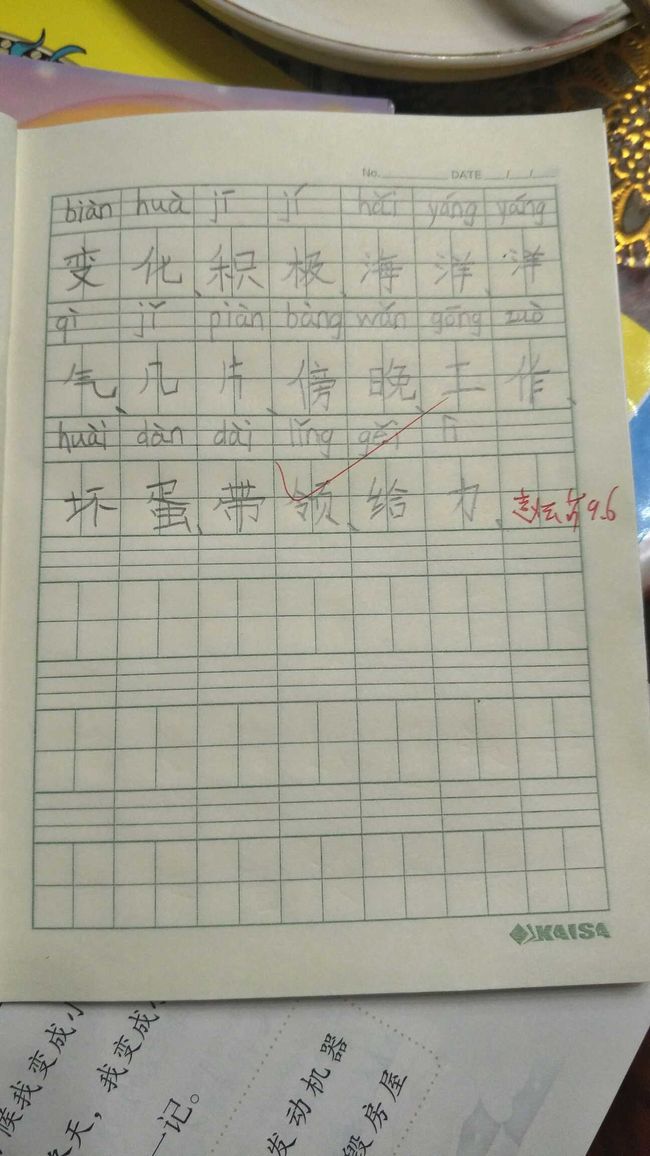 No. DATE / /
biàn huà jī jí hǎi yáng yáng
变化、积极、海洋、洋
qì jǐ piàn bàng wǎn gōng zuò
气、几片、傍晚、工作、
huài dàn dài lǐng gěi lì
坏蛋、带领、给力、
9.6
KAISA
候我变成小
天，我变成小
一记。
发动机器
毁房屋